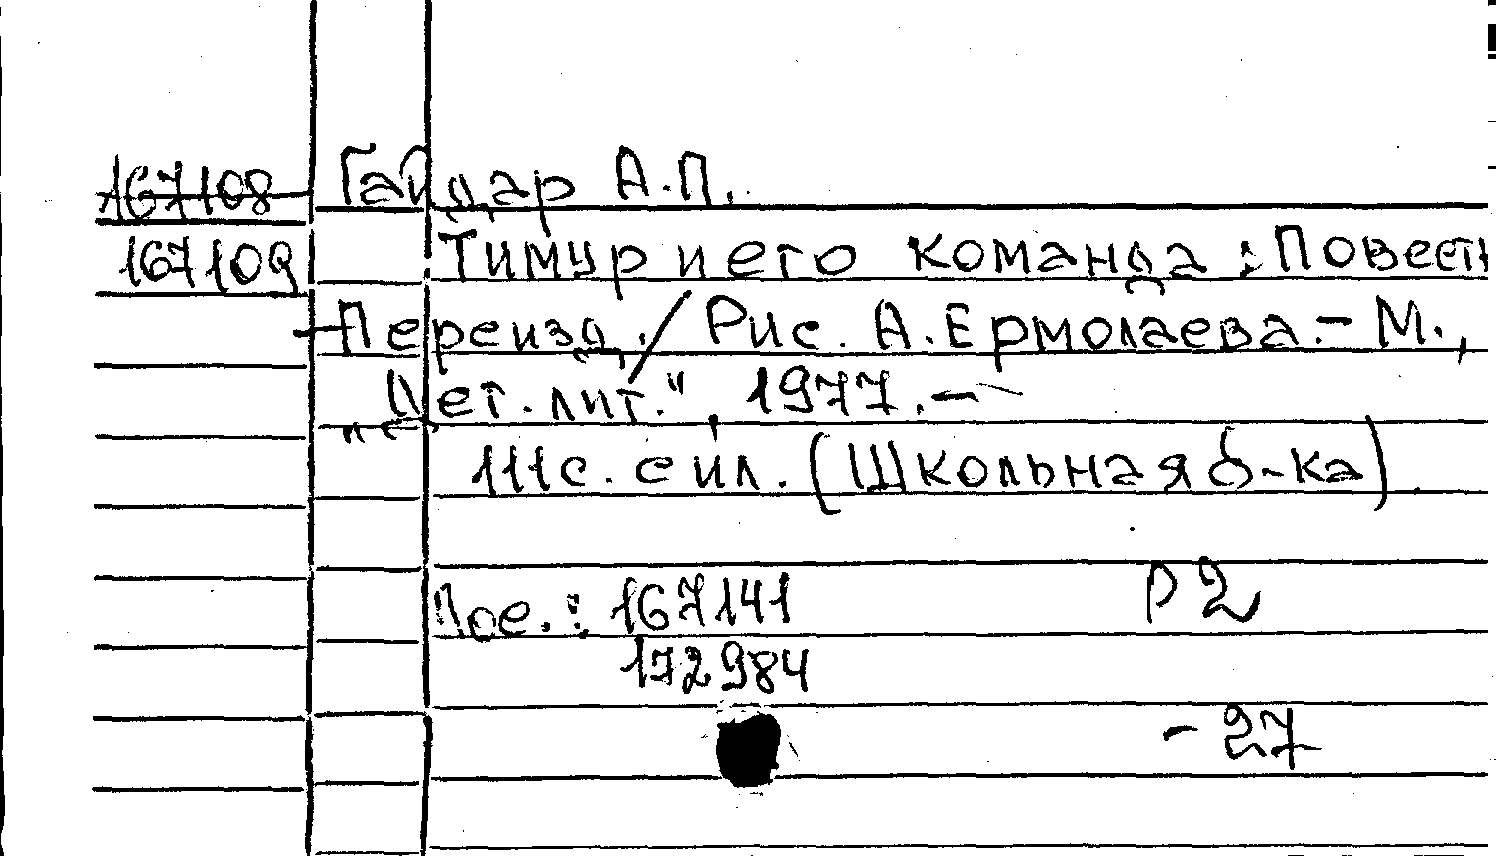 167108 Гайдар А.П.
167109 Тимур и его команда : Повесть
Переизд. / Рис. А. Ермолаева. – М.,
„Дет. лит.", 1977. –
111 с. с ил. (Школьная б-ка).
Пос. : 167141 Р2
172984
- 27